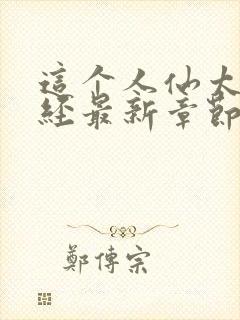 這个人仙太
經最新章節
鄭傳宗